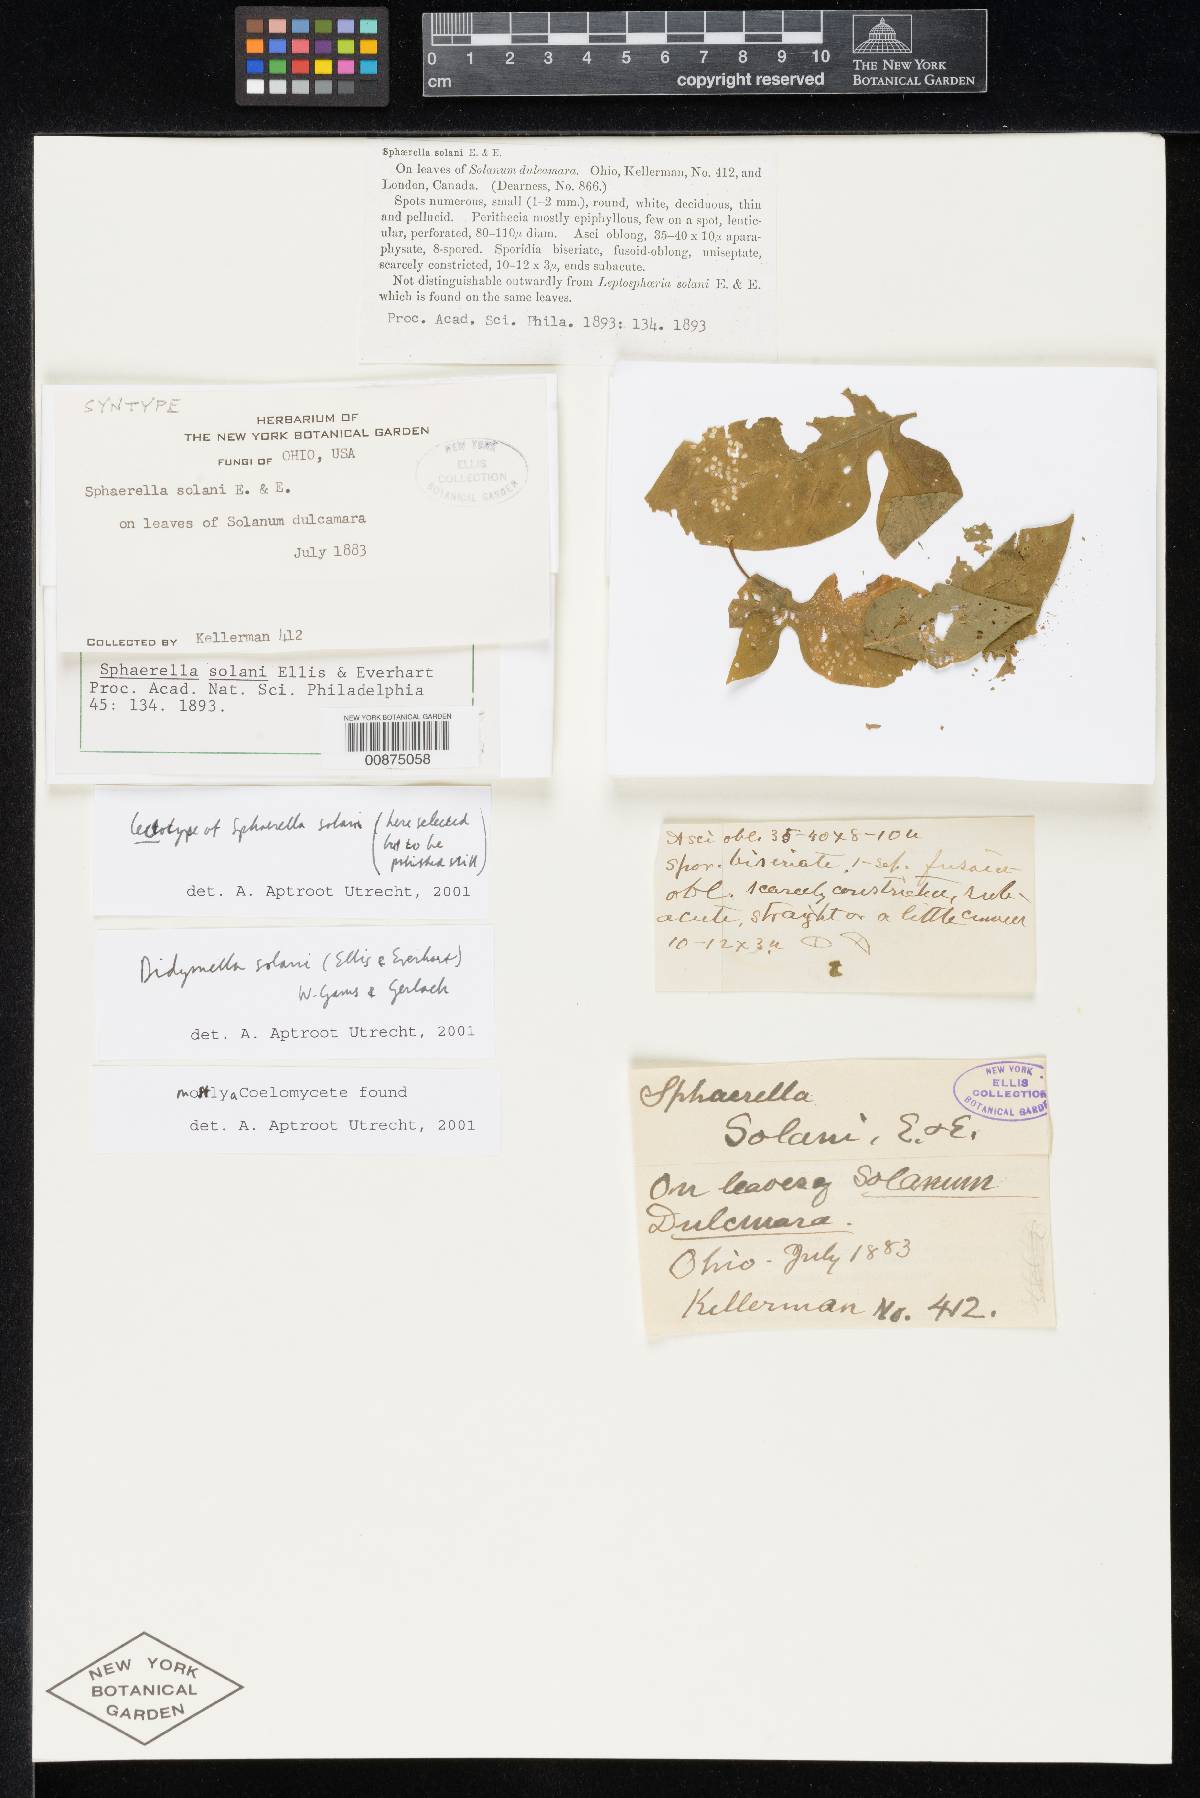 0 1 2 3 4 5 6 7 8 9 10
cm
copyright reserved
THE NEW YORK
BOTANICAL GARDEN
Sphærella solani E. & E.
On leaves of Solanum dulcamara. Ohio, Kellerman, No. 412, and
London, Canada. (Dearness, No. 866.)
Spots numerous, small (1–2 mm.), round, white, deciduous, thin
and pellucid. Perithecia mostly epiphyllous, few on a spot, lentic-
ular, perforated, 80–110µ diam. Asci oblong, 35–40 x 10µ apara-
physate, 8-spored. Sporidia biseriate, fusoid-oblong, uniseptate,
scarcely constricted, 10–12 x 3µ, ends subacute.
Not distinguishable outwardly from Leptosphæria solani E. & E.
which is found on the same leaves.
Proc. Acad. Sci. Phila. 1893: 134. 1893
SYNTYPE
HERBARIUM OF
THE NEW YORK BOTANICAL GARDEN
FUNGI OF OHIO, USA
NEW YORK
ELLIS
COLLECTION
BOTANICAL GARDEN
Sphaerella solani E. & E.
on leaves of Solanum dulcamara
July 1883
COLLECTED BY Kellerman 412
Sphaerella solani Ellis & Everhart
Proc. Acad. Nat. Sci. Philadelphia
45: 134. 1893.
NEW YORK BOTANICAL GARDEN
00875058
lectotype of Sphaerella solani (here selected
but to be
published still)
det. A. Aptroot Utrecht, 2001
Didymella solani (Ellis & Everhart)
W. Gams & Gerlach
det. A. Aptroot Utrecht, 2001
mostly a Coelomycete found
det. A. Aptroot Utrecht, 2001
Asci obl. 35-40 x 8-10 u
Spor. biseriate, 1-sep. fusoid
obl. scarcely constricted, sub-
acute, straight or a little curved
10-12 x 3 u
Sphaerella
Solani, E. & E.
NEW YORK
ELLIS
COLLECTION
BOTANICAL GARDE
On leaves of Solanum
Dulcmara.
Ohio - July 1883
Kellerman No. 412.
NEW YORK
BOTANICAL
GARDEN